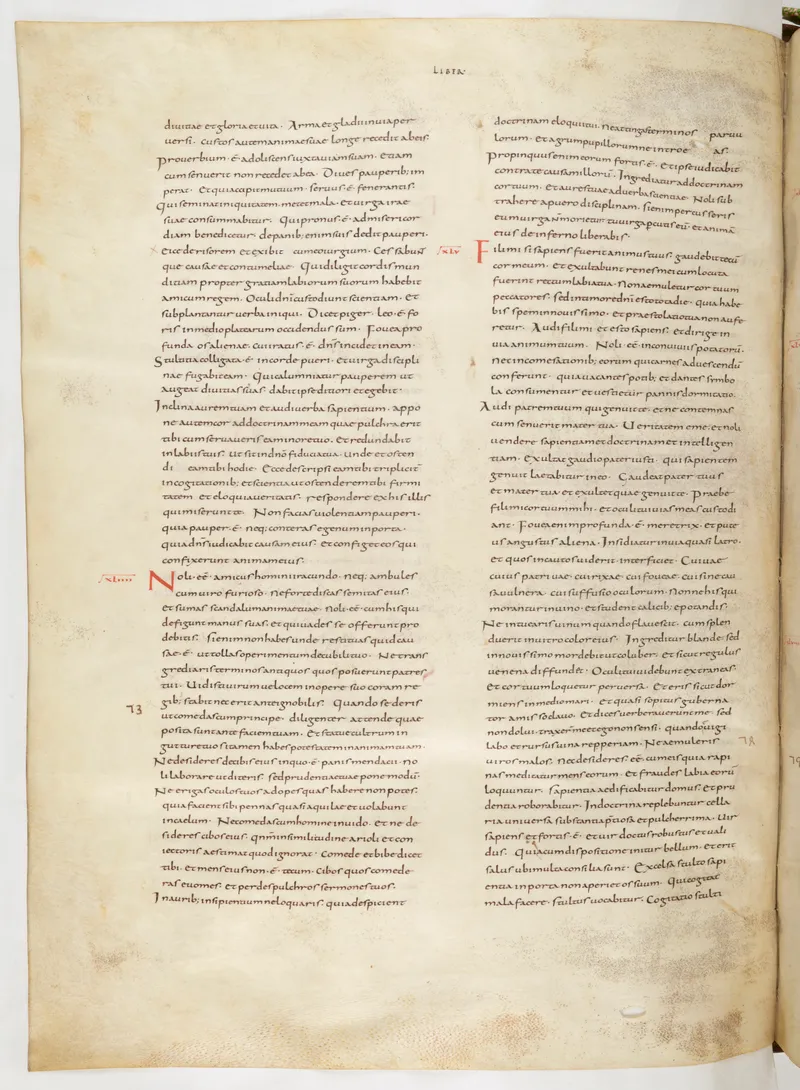 LIBER
diuitiae et gloria et uita. Arma et gladii in uia per
uersi. Custos autem animae suae longe recedit ab eis.
Prouerbium ē. adoliscens iuxta uiam suam. Etiam
cum senuerit non recedet ab ea. Diues pauperib; im
perat. Et qui accipit mutuum. seruus ē fenerantis.
Qui seminat iniquitatem. metet mala. et uirga irae
suae consummabitur. Qui pronus ē. ad misericor
diam benedicetur; de panib; enim suis dedit pauperi.
Eice derisorem et exibit cum eo iurgium. Cessabunt
que causae et contumeliae. Qui diligit cordis mun
ditiam propter gratiam labiorum suorum habebit
amicum regem. Oculi dn̄i custodiunt scientiam. Et
subplantantur uerba iniqui. Dicet piger. leo ē fo
ris in medio platearum occidendus sum. Fouea pro
funda os alienae. cui iratus ē. dn̄s incidet in eam.
Stultitia colligata ē in corde pueri. et uirga discipli
nae fugabit eam. Qui calumniatur pauperem ut
augeat diuitias suas. dabit ipse ditiori et egebit.
Inclina aurem tuam et audi uerba sapientium. appo
ne autem cor ad doctrinam meam quae pulchra erit
tibi cum seruaueris eam in ore tuo. Et redundabit
in labiis tuis. ut sit in dn̄o fiducia tua. unde et osten
di eam tibi hodie. Ecce descripsi eam tibi tripliciter
in cogitationib; et scientia ut ostenderem tibi firmi
tatem. et eloquia ueritatis. respondere ex his illis
qui miserunt te. Non facias uiolentiam pauperi.
quia pauper ē. neq; conteras egenum in porta.
quia dn̄s iudicabit causam eius. et configet eos qui
confixerunt animam eius.
xliiii Noli eē amicus homini iracundo. neq; ambules
cum uiro furioso. Ne forte discas semitas eius.
et sumas scandalum animae tuae. Noli eē cum his qui
defigunt manus suas. et qui uades se offerunt pro
debitis. Si enim non habes unde restituas quid cau
sae ē. ut tollas operimentum de cubili tuo. Ne trans
grediaris terminos antiquos quos posuerunt patres
tui. Uidisti uirum uelocem in opere suo coram re
gib; stabit nec erit ante ignobilis. Quando sederis
73 ut comedas cum principe. diligenter attende quae
posita sunt ante faciem tuam. Et statue cultrum in
gutture tuo si tamen habes potestatem in animam tuam.
Ne desideres de cibis eius in quo ē. panis mendacii. no
li laborare ut diteris. sed prudentiae tuae pone modū.
Ne erigas oculos tuos ad opes quas habere non potes.
quia facient sibi pennas quasi aquilae et uolabunt
in caelum. Ne comedas cum homine inuido. et ne de
sideres cibos eius. qnm̄ in similitudine arioli et con
iectoris aestimat quod ignorat. Comede et bibe dicet
tibi. et mens eius non ē. tecum. Cibos quos comede
ras euomes. et perdes pulchros sermones tuos.
In aurib; insipientium ne loquaris. quia despicient
doctrinam eloquii tui. Ne attingas terminos paruu
lorum. et agrum pupillorum ne introe as.
Propinquus enim eorum fortis ē. Et ipse iudicabit
contra te causam illorū. Ingrediatur ad doctrinam
cor tuum. Et aures tuae ad uerba scientiae. Noli sub
trahere a puero disciplinam. si enim percusseris
eum uirga non morietur. tu uirga percuties eū. et animā
eius de inferno liberabis.
xlv Fili mi si sapiens fuerit animus tuus. gaudebit tecū
cor meum. Et exultabunt renes mei cum locuta
fuerint rectum labia tua. Non aemuletur cor tuum
peccatores. sed in timore dn̄i esto tota die. quia habe
bis spem in nouissimo. et praestolatio tua non aufe
retur. Audi fili mi et esto sapiens. et dirige in
uia animum tuum. Noli eē in conuiuiis potatorū.
nec in comesationib; eorum qui carnes ad uescendū
conferunt. quia uacantes potib; et dantes simbo
la consumentur et uestietur pannis dormitatio.
Audi patrem tuum qui genuit te. et ne contemnas
cum senuerit mater tua. Ueritatem eme. et noli
uendere sapientiam et doctrinam et intelligen
tiam. Exultat gaudio pater iusti. qui sapientem
genuit laetabitur in eo. Gaudeat pater tuus
et mater tua et exultet quae genuit te. Praebe
fili mi cor tuum mihi. et oculi tui uias meas custodi
ant. Fouea enim profunda ē. meretrix. et pute
us angustus aliena. Insidiatur in uia quasi latro.
et quos incautos uiderit interficiet. Cui uae
cuius patri uae. cui rixae. cui foueae. cui sine cau
sa uulnera. cui suffusio oculorum. Nonne his qui
morantur in uino. et student calicib; epotandis.
Ne intuearis uinum quando flauescit. cum splen
duerit in uitro color eius. Ingreditur blande. sed
in nouissimo mordebit ut coluber. et sicut regulus
uenena diffundet. Oculi tui uidebunt extraneas.
Et cor tuum loquetur peruersa. Et eris sicut dor
miens in medio mari. et quasi sopitus guberna
tor amisso clauo. Et dices uerberauerunt me. sed
non dolui. traxerunt me et ego non sensi. quando euigi
78
labo et rursus uina repperiam. Ne aemuleris
uiros malos. nec desideres eē cum eis quia rapi
nas meditatur mens eorum. et fraudes labia eorū
loquuntur. sapientia aedificabitur domus. et pru
dentia roborabitur. In doctrina replebuntur cella
ria uniuersa substantia p̄tiosa et pulcherrima. Uir
sapiens et fortis ē. et uir doctus robustus et uali
dus. Quia cum dispositione initur bellum. et erit
salus ubi multa consilia sunt. Excelsa stulto sapi
entia in porta non aperiet os suum. Qui cogitat
mala facere. stultus uocabitur. Cogitatio stulti